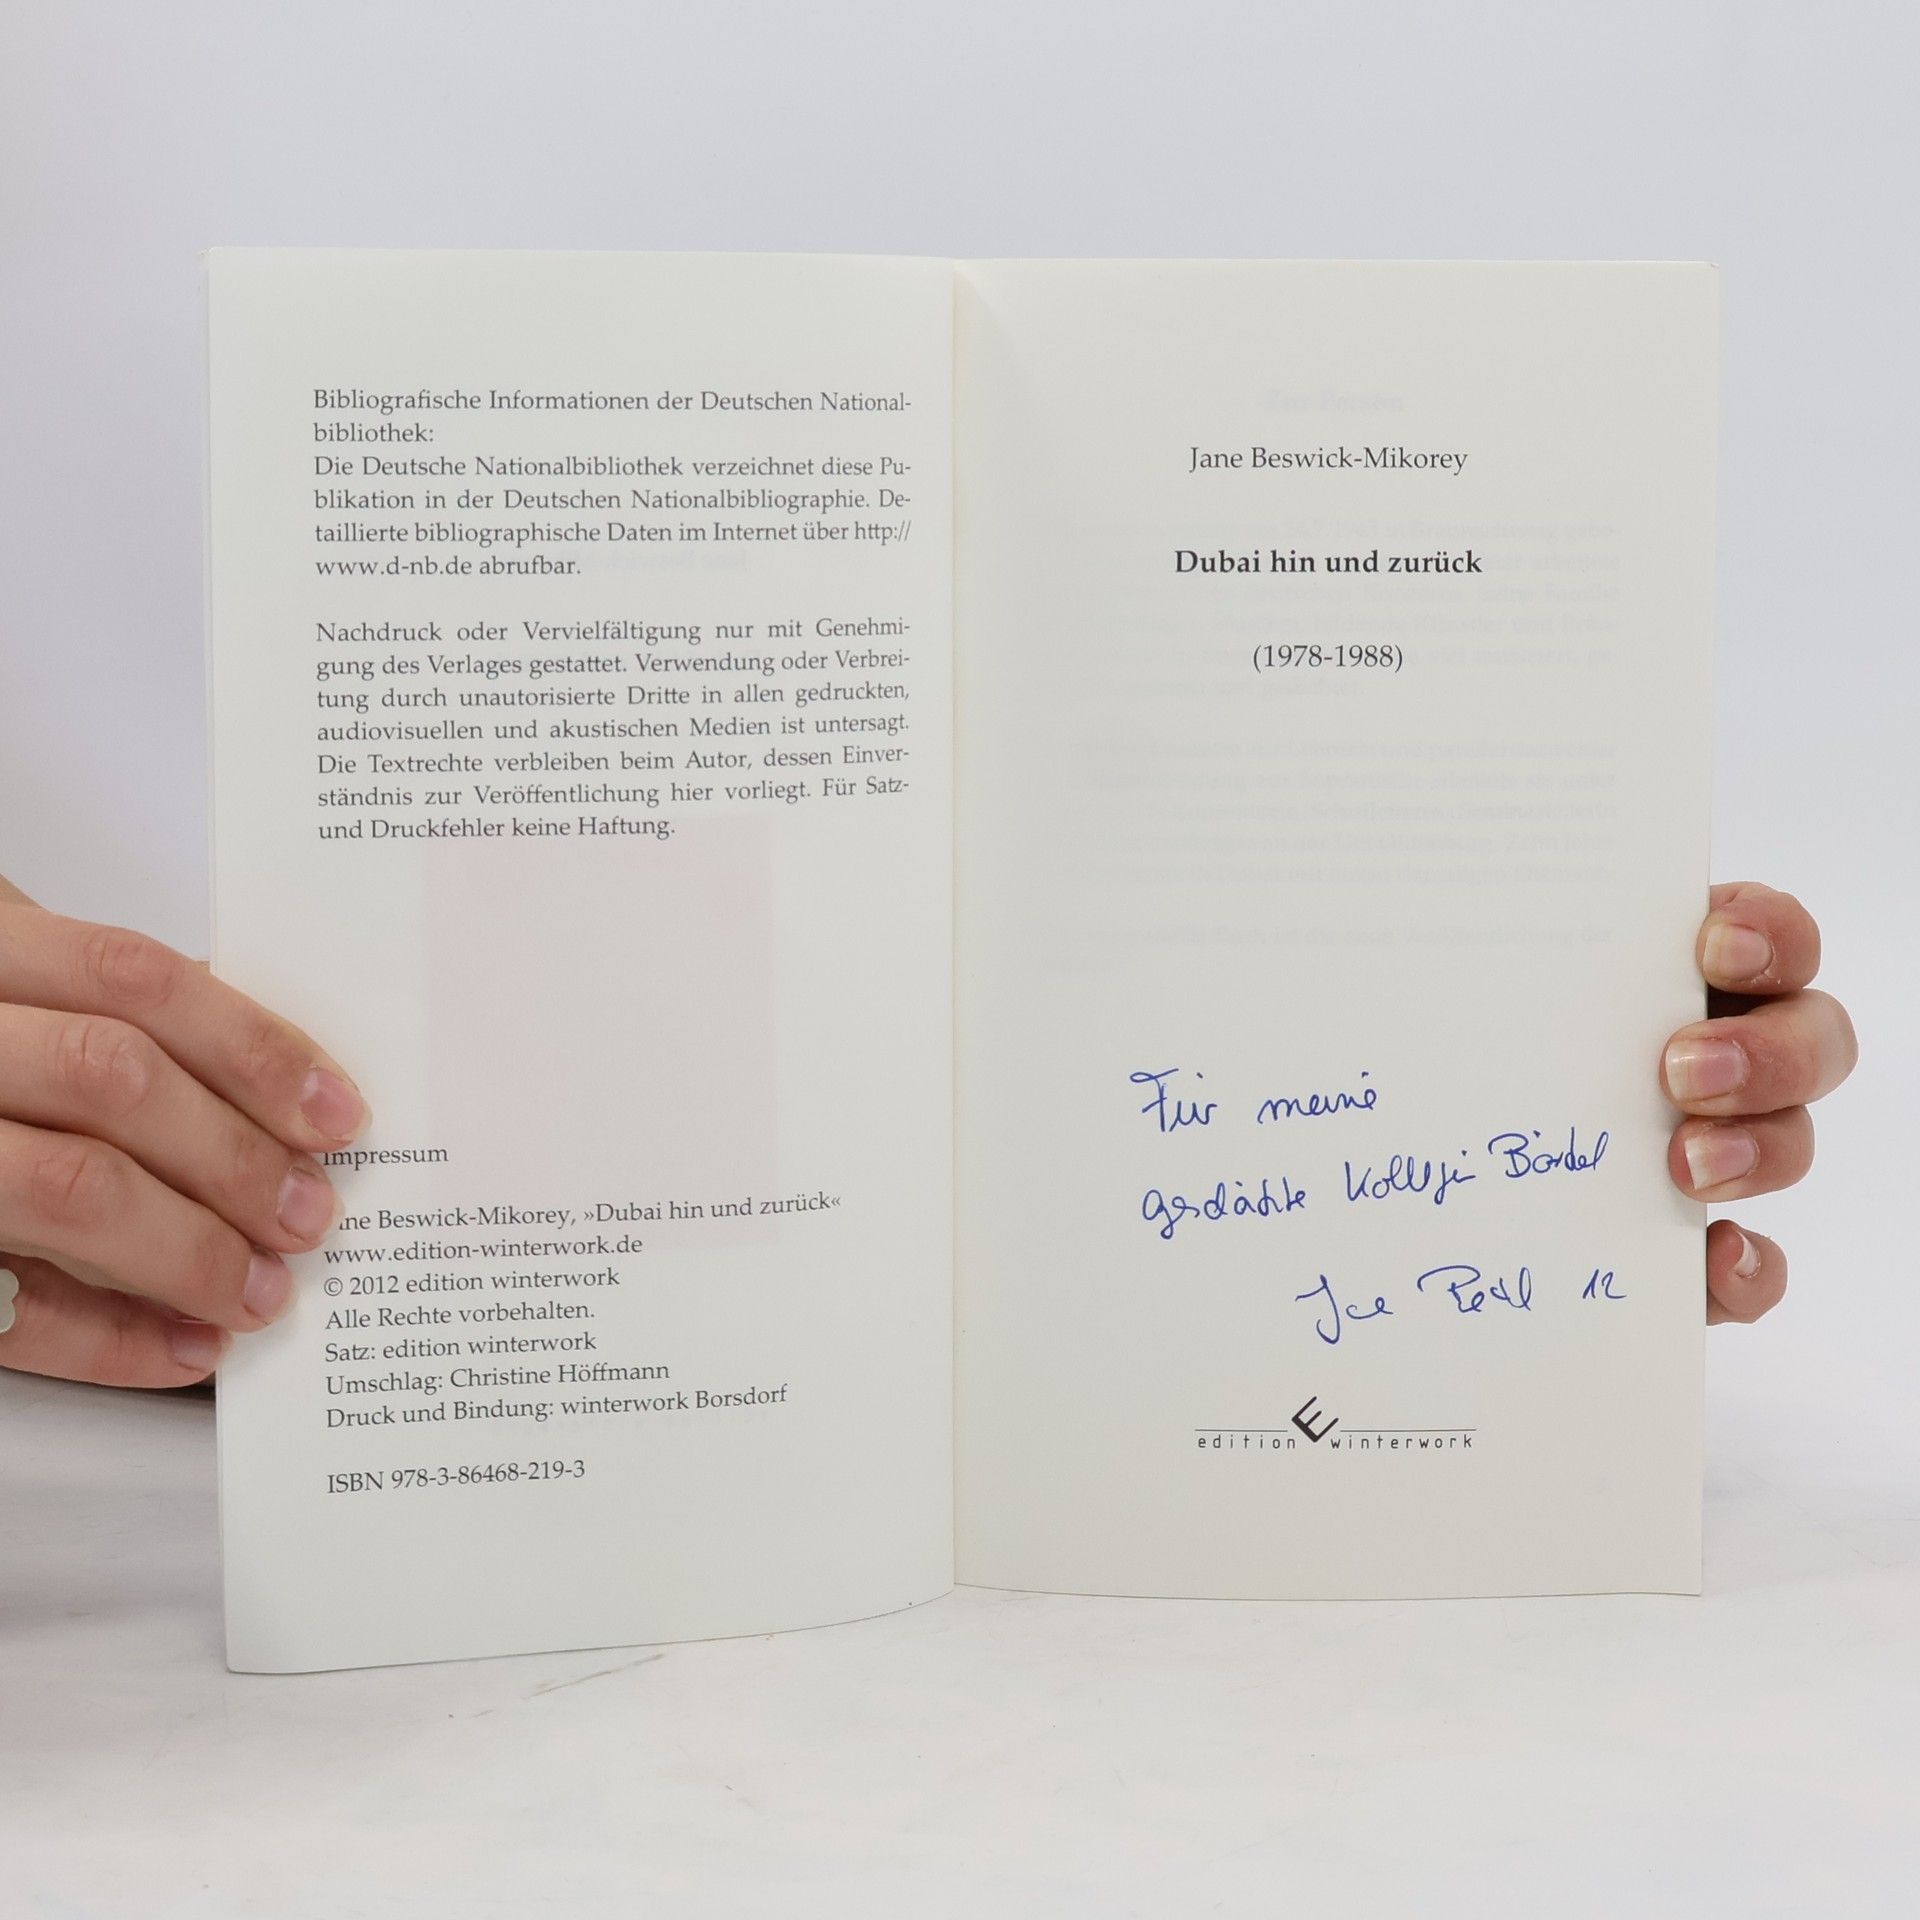 Bibliografische Informationen der Deutschen National-
bibliothek:
Die Deutsche Nationalbibliothek verzeichnet diese Pu-
blikation in der Deutschen Nationalbibliographie. De-
taillierte bibliographische Daten im Internet über http://
www.d-nb.de abrufbar.
Nachdruck oder Vervielfältigung nur mit Genehmi-
gung des Verlages gestattet. Verwendung oder Verbrei-
tung durch unautorisierte Dritte in allen gedruckten,
audiovisuellen und akustischen Medien ist untersagt.
Die Textrechte verbleiben beim Autor, dessen Einver-
ständnis zur Veröffentlichung hier vorliegt. Für Satz-
und Druckfehler keine Haftung.
Impressum
ane Beswick-Mikorey, »Dubai hin und zurück«
www.edition-winterwork.de
© 2012 edition winterwork
Alle Rechte vorbehalten.
Satz: edition winterwork
Umschlag: Christine Höffmann
Druck und Bindung: winterwork Borsdorf
ISBN 978-3-86468-219-3
Jane Beswick-Mikorey
Dubai hin und zurück
(1978-1988)
Für meine
12
edition E winterwork